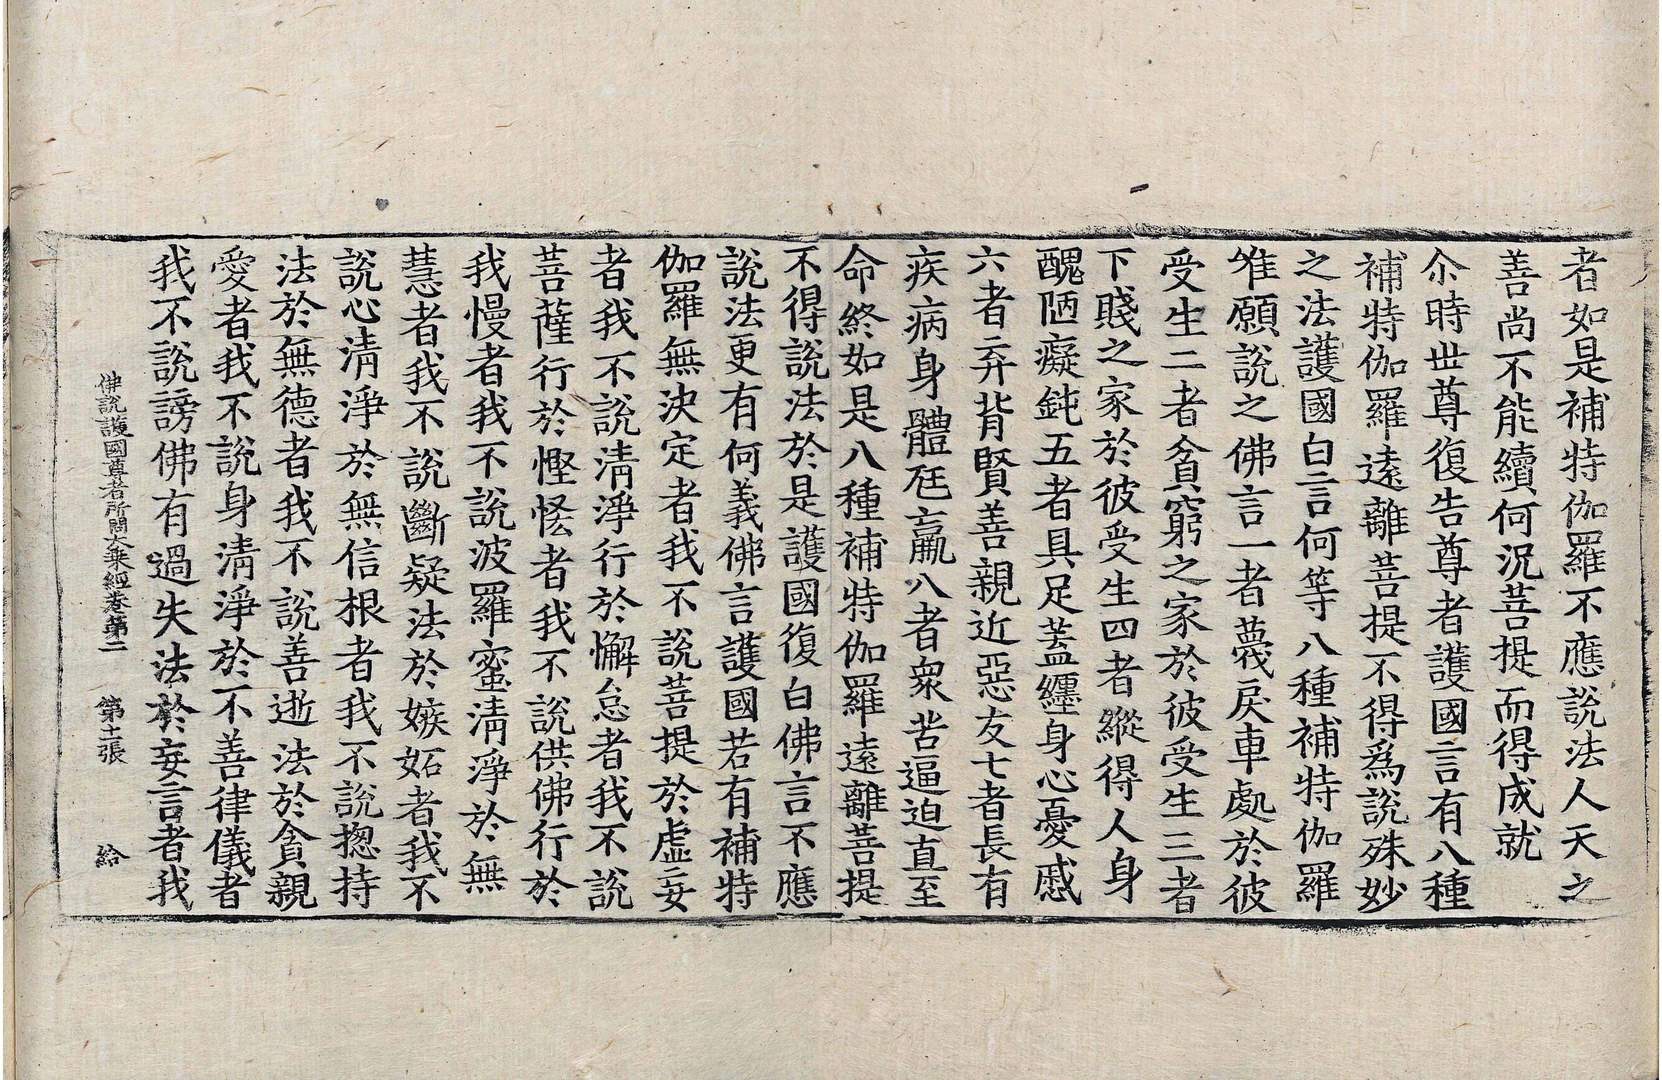 者如是補特伽羅不應說法人天之
善尚不能續何況菩提而得成就
尒時世尊復告尊者護國言有八種
補特伽羅遠離菩提不得爲說殊妙
之法護國白言何等八種補特伽羅
唯願說之佛言一者蔑戾車處於彼
受生二者貧窮之家於彼受生三者
下賤之家於彼受生四者縱得人身
醜陋癡鈍五者具足蓋纏身心憂慼
六者弃背賢善親近惡友七者長有
疾病身體尫羸八者衆苦逼迫直至
命終如是八種補特伽羅遠離菩提
不得說法於是護國復白佛言不應
說法更有何義佛言護國若有補特
伽羅無決定者我不說菩提於虛妄
者我不說清淨行於懈怠者我不說
菩薩行於慳悋者我不說供佛行於
我慢者我不說波羅蜜清淨於無
慧者我不說斷疑法於嫉妬者我不
說心清淨於無信根者我不說揔持
法於無德者我不說善逝法於貪親
愛者我不說身清淨於不善律儀者
我不說謗佛有過失法於妄言者我
佛說護國尊者所問大乘經卷第二 第十一張 給